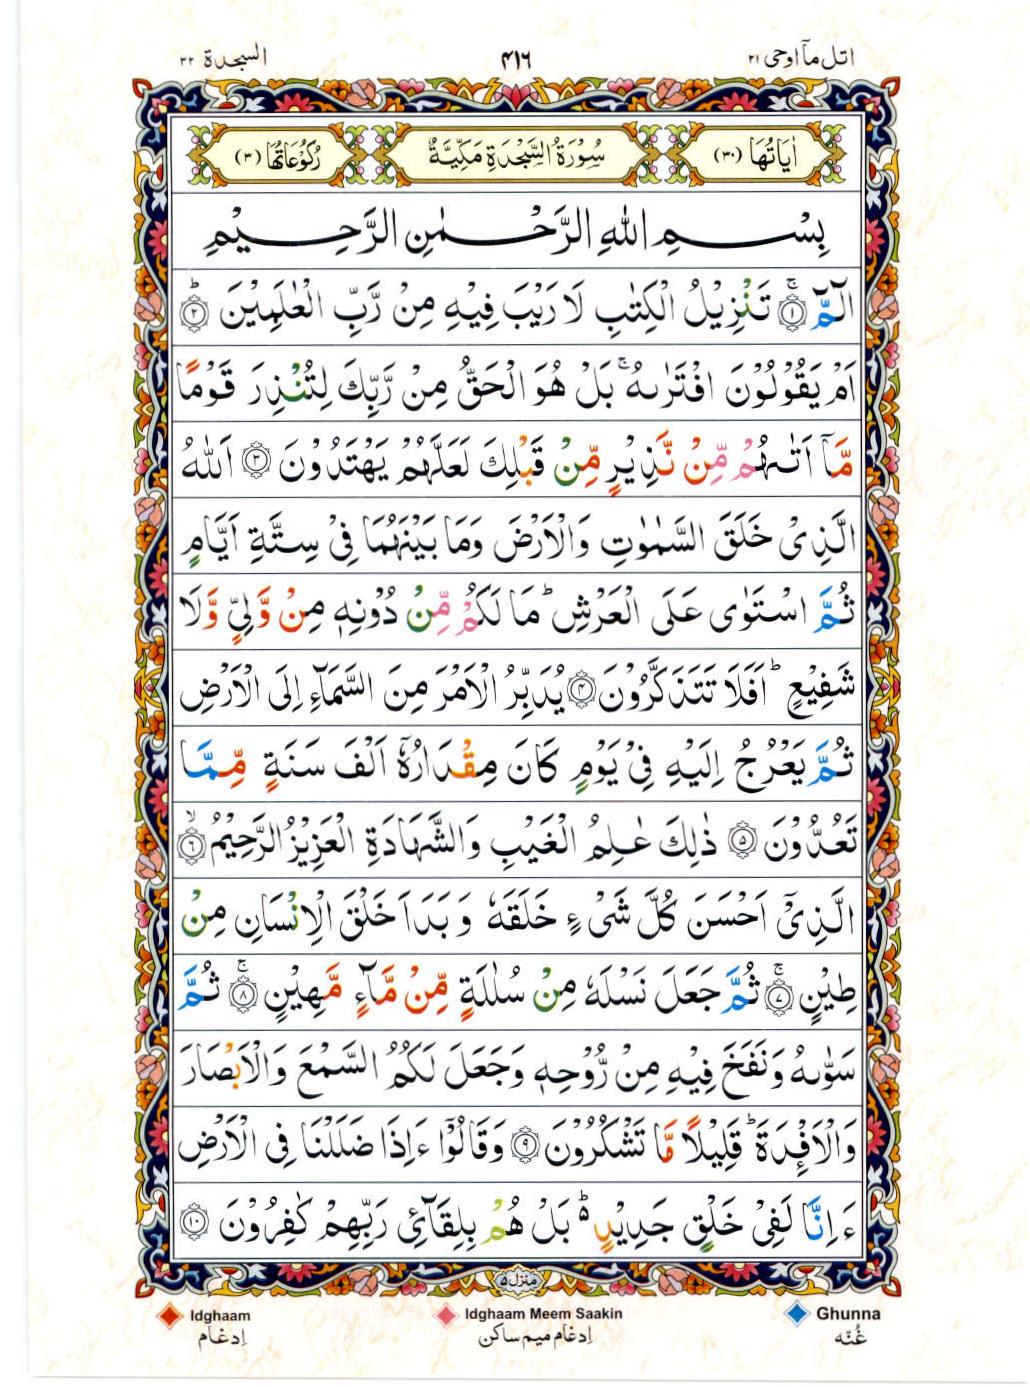 اتل مآ اوحی ۲۱
۴۱۶
السجدة ۳۲
اٰیَاتُهَا (۳۰)
سُوْرَةُ السَّجْدَةِ مَكِّيَّةٌ
رُكُوْعَاتُهَا (۳)
بِسْمِ اللّٰهِ الرَّحْمٰنِ الرَّحِيْمِ
الٓمّٓ ۚ‏﴿۱﴾ تَنْزِيْلُ الْكِتٰبِ لَا رَيْبَ فِيْهِ مِنْ رَّبِّ الْعٰلَمِيْنَ ؕ‏﴿۲﴾
اَمْ يَقُوْلُوْنَ افْتَرٰىهُ ۚ بَلْ هُوَ الْحَقُّ مِنْ رَّبِّكَ لِتُنْذِرَ قَوْمًا
مَّاۤ اَتٰىهُمْ مِّنْ نَّذِيْرٍ مِّنْ قَبْلِكَ لَعَلَّهُمْ يَهْتَدُوْنَ ﴿۳﴾ اَللّٰهُ
الَّذِىْ خَلَقَ السَّمٰوٰتِ وَالْاَرْضَ وَمَا بَيْنَهُمَا فِىْ سِتَّةِ اَيَّامٍ
ثُمَّ اسْتَوٰى عَلَى الْعَرْشِ ؕ مَا لَكُمْ مِّنْ دُوْنِهٖ مِنْ وَّلِىٍّ وَّلَا
شَفِيْعٍ ؕ اَفَلَا تَتَذَكَّرُوْنَ ﴿۴﴾ يُدَبِّرُ الْاَمْرَ مِنَ السَّمَآءِ اِلَى الْاَرْضِ
ثُمَّ يَعْرُجُ اِلَيْهِ فِىْ يَوْمٍ كَانَ مِقْدَارُهٗۤ اَلْفَ سَنَةٍ مِّمَّا
تَعُدُّوْنَ ﴿۵﴾ ذٰلِكَ عٰلِمُ الْغَيْبِ وَالشَّهَادَةِ الْعَزِيْزُ الرَّحِيْمُ ۙ‏﴿۶﴾
الَّذِىْۤ اَحْسَنَ كُلَّ شَىْءٍ خَلَقَهٗ وَبَدَاَ خَلْقَ الْاِنْسَانِ مِنْ
طِيْنٍ ۚ‏﴿۷﴾ ثُمَّ جَعَلَ نَسْلَهٗ مِنْ سُلٰلَةٍ مِّنْ مَّآءٍ مَّهِيْنٍ ۚ‏﴿۸﴾ ثُمَّ
سَوّٰىهُ وَنَفَخَ فِيْهِ مِنْ رُّوْحِهٖ وَجَعَلَ لَكُمُ السَّمْعَ وَالْاَبْصَارَ
وَالْاَفْـِٕدَةَ ؕ قَلِيْلًا مَّا تَشْكُرُوْنَ ﴿۹﴾ وَقَالُوْۤا ءَاِذَا ضَلَلْنَا فِى الْاَرْضِ
ءَاِنَّا لَفِىْ خَلْقٍ جَدِيْدٍ ؕ۬ بَلْ هُمْ بِلِقَآئِ رَبِّهِمْ كٰفِرُوْنَ ﴿۱۰﴾
منزل ۵
Idghaam
اِدغام
Idghaam Meem Saakin
اِدغام میم ساکن
Ghunna
غُنّه